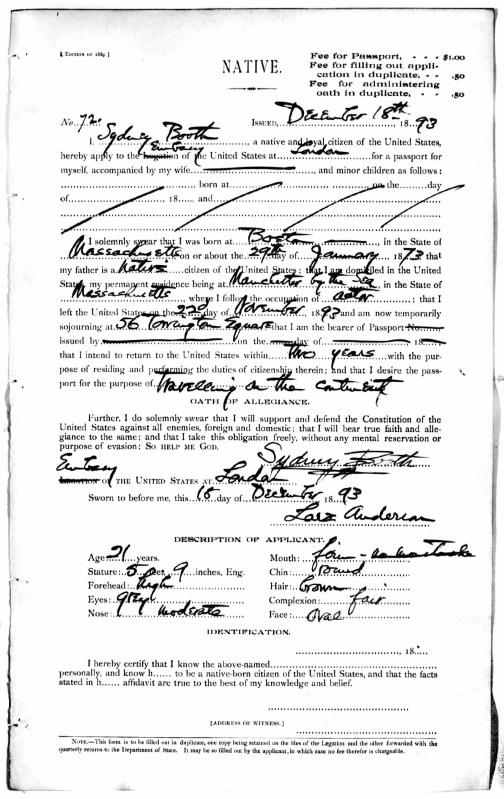 [ EDITION OF 1889. ]
NATIVE.
Fee for Passport, - - - $1.00
Fee for filling out appli-
cation in duplicate, - - .50
Fee for administering
oath in duplicate, - - .50
No. 72. ISSUED, December 18th 1893
I, Sydney Booth, a native and loyal citizen of the United States,
hereby apply to the Legation Embassy of the United States at London for a passport for
myself, accompanied by my wife, and minor children as follows:
born at on the day
of, 18, and
I solemnly swear that I was born at Boston, in the State of
Massachusetts on or about the 29th day of January, 1873 that
my father is a Native citizen of the United States; that I am domiciled in the United
States, my permanent residence being at Manchester by the Sea, in the State of
Massachusetts, where I follow the occupation of actor; that I
left the United States on the 22d day of November 1893 and am now temporarily
sojourning at 56 Torrington Square that I am the bearer of Passport
issued by on the day of 18
that I intend to return to the United States within two years with the pur-
pose of residing and performing the duties of citizenship therein; and that I desire the pass-
port for the purpose of travelling on the continent
OATH OF ALLEGIANCE.
Further, I do solemnly swear that I will support and defend the Constitution of the
United States against all enemies, foreign and domestic; that I will bear true faith and alle-
giance to the same; and that I take this obligation freely, without any mental reservation or
purpose of evasion: SO HELP ME GOD.
Sydney Booth
Embassy
LEGATION OF THE UNITED STATES AT London
Sworn to before me, this 18 day of December 1893
Larz Anderson
DESCRIPTION OF APPLICANT.
Age: 21 years.
Stature: 5 feet, 9 inches, Eng.
Forehead: high
Eyes: grey
Nose: moderate
Mouth: firm - no moustache
Chin: round
Hair: brown
Complexion: fair
Face: Oval
IDENTIFICATION.
, 18
I hereby certify that I know the above-named
personally, and know h...... to be a native-born citizen of the United States, and that the facts
stated in h...... affidavit are true to the best of my knowledge and belief.
[ADDRESS OF WITNESS.]
NOTE.—This form is to be filled out in duplicate, one copy being retained on the files of the Legation and the other forwarded with the
quarterly returns to the Department of State. It may be so filled out by the applicant, in which case no fee therefor is chargeable.